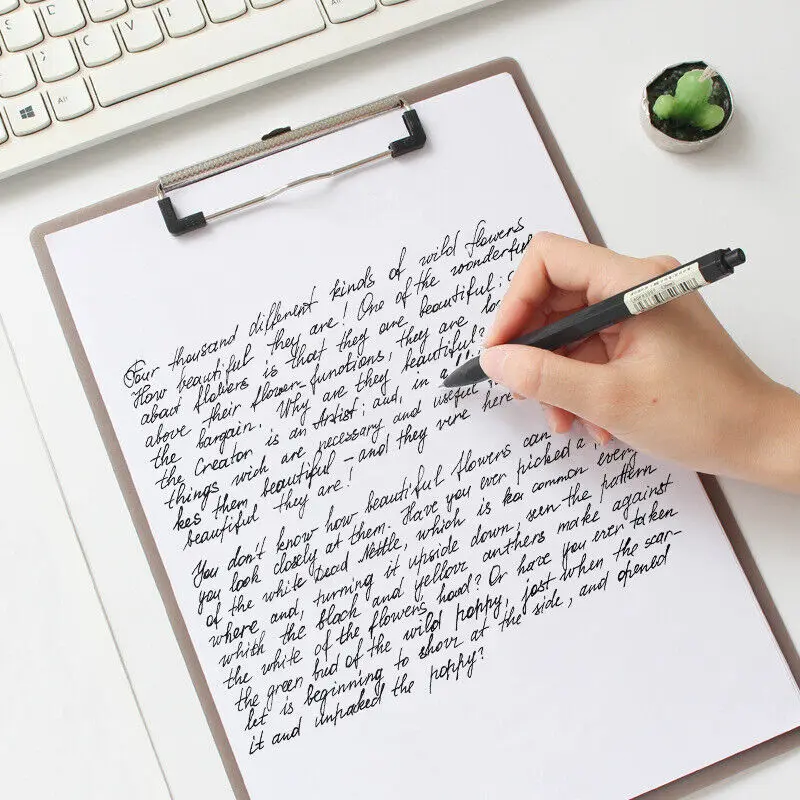 Four thousand different kinds of wild flowers
How beautiful they are! One of the wonderful
about flowers is that they are beautiful;
above their flower-functions, they are
the bargain. Why are they beautiful?
the Creator is an Artist; and, in
things wich are necessary and useful
kes them beautiful – and they were here
beautiful they are!
You don't know how beautiful flowers can
you look closely at them. Have you ever picked a
of the white Dead Nettle, which is common every
where and, turning it upside down, seen the pattern
whith the black and yellow anthers make against
the white of the flowers hood? Or have you ever taken
the green bud of the wild poppy, jost when the scar-
let is beginning to show at the side, and opened
it and unpacked the poppy?
Alt
Alt